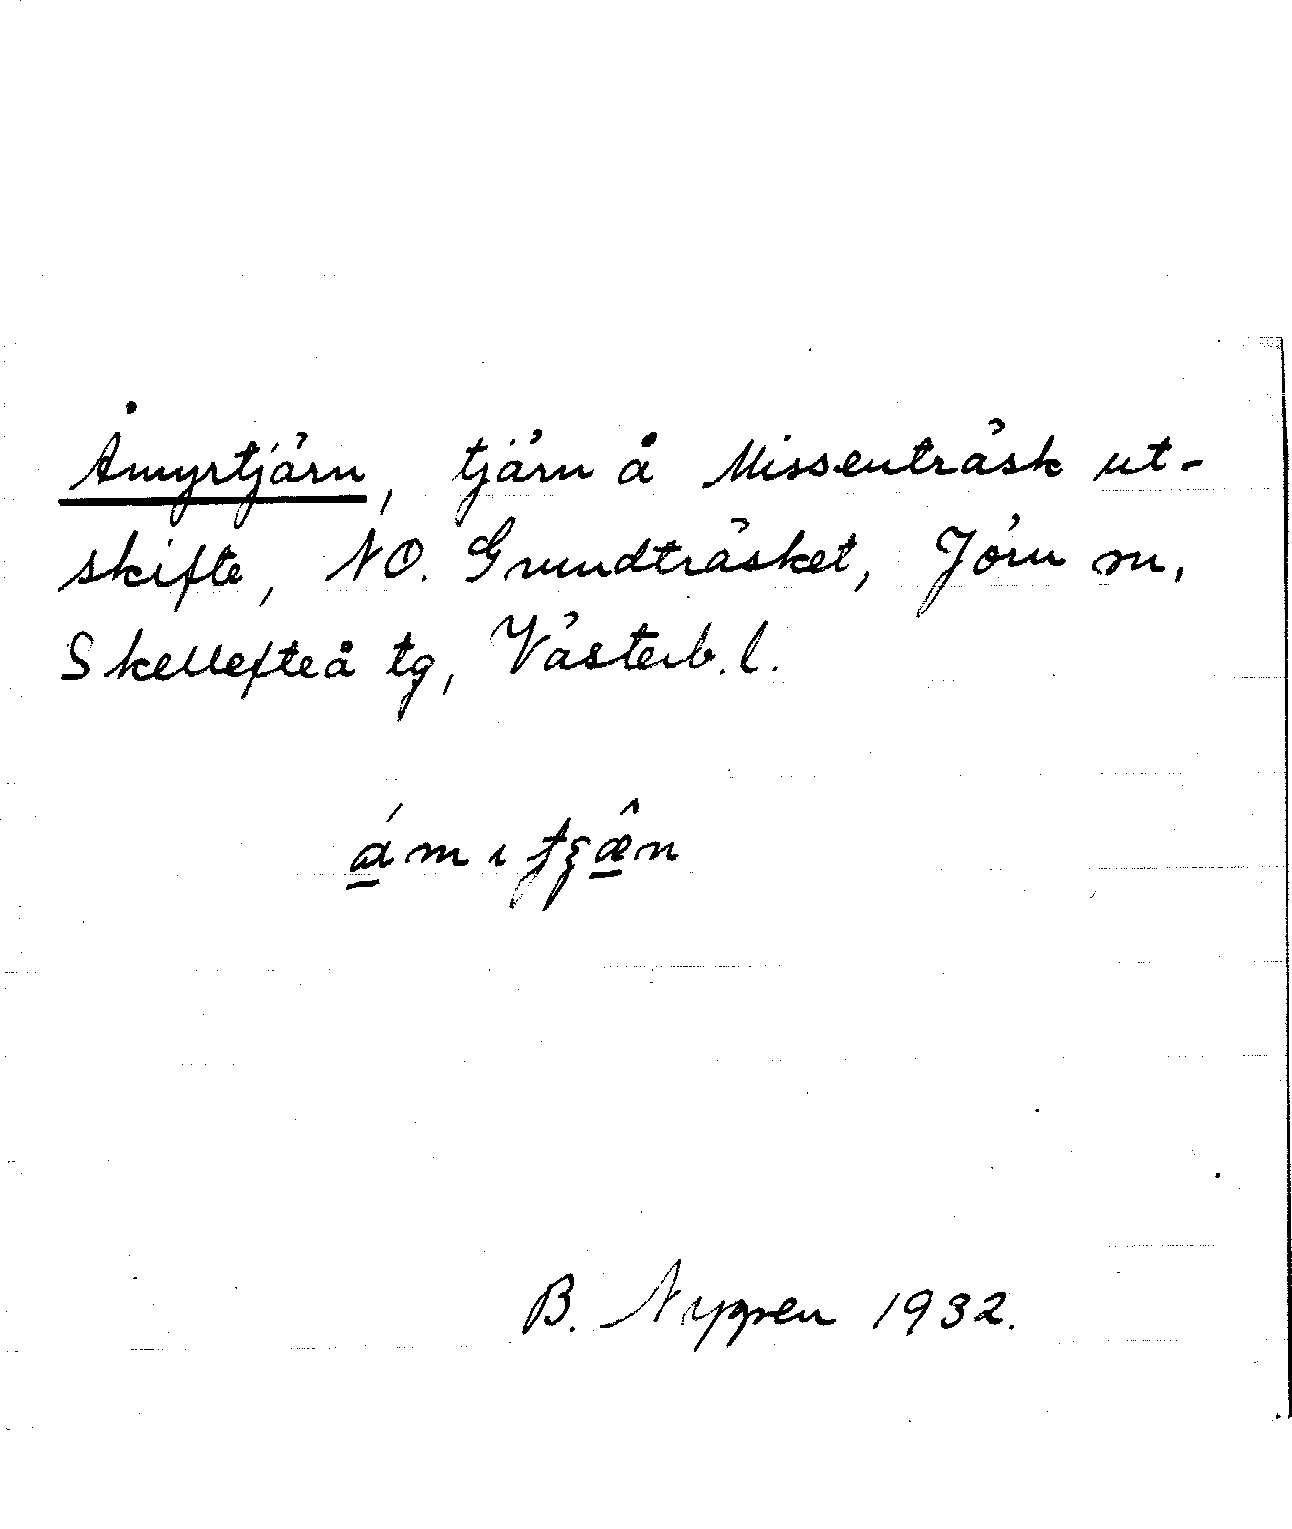 Åmyrtjärn, tjärn å Missenträsk ut-
skifte, NO. Grundträsket, Jörn sn,
Skellefteå tg, Västerb. l.
B. Nygren 1932.